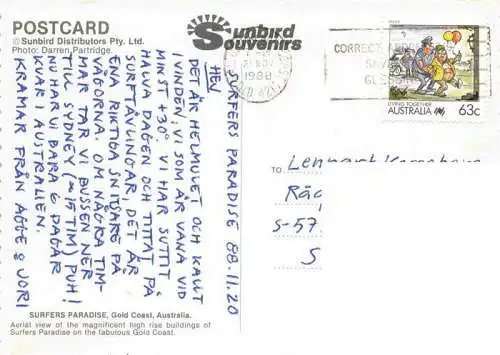 POSTCARD
© Sunbird Distributors Pty. Ltd.
Photo: Darren Partridge.
Sunbird
Souvenirs
SURFERS PARADISE 88.11.20
HEJ
DET ÄR HELMULET OCH KALLT
I VINDEN, VI SOM ÄR VANA VID
MINST +30° VI HAR SUTTIT
HALVA DAGEN OCH TITTAT PÅ
SURFTÄVLINGAR, DET ÄR
ENA RIKTIGA SNITSARE PÅ
VÅGORNA. OM NÅGRA TIM-
MAR TAR VI BUSSEN NER
TILL SYDNEY (≈15 TIM) PUH!
NU HAR VI BARA 6 DAGAR
KVAR I AUSTRALIEN.
KRAMAR FRÅN AGGE & JORI
SURFERS PARADISE, Gold Coast, Australia.
Aerial view of the magnificent high rise buildings of
Surfers Paradise on the fabulous Gold Coast.
1988
CORRECT
LIVING TOGETHER
AUSTRALIA 63c
TO:
Lennart
S-57
S